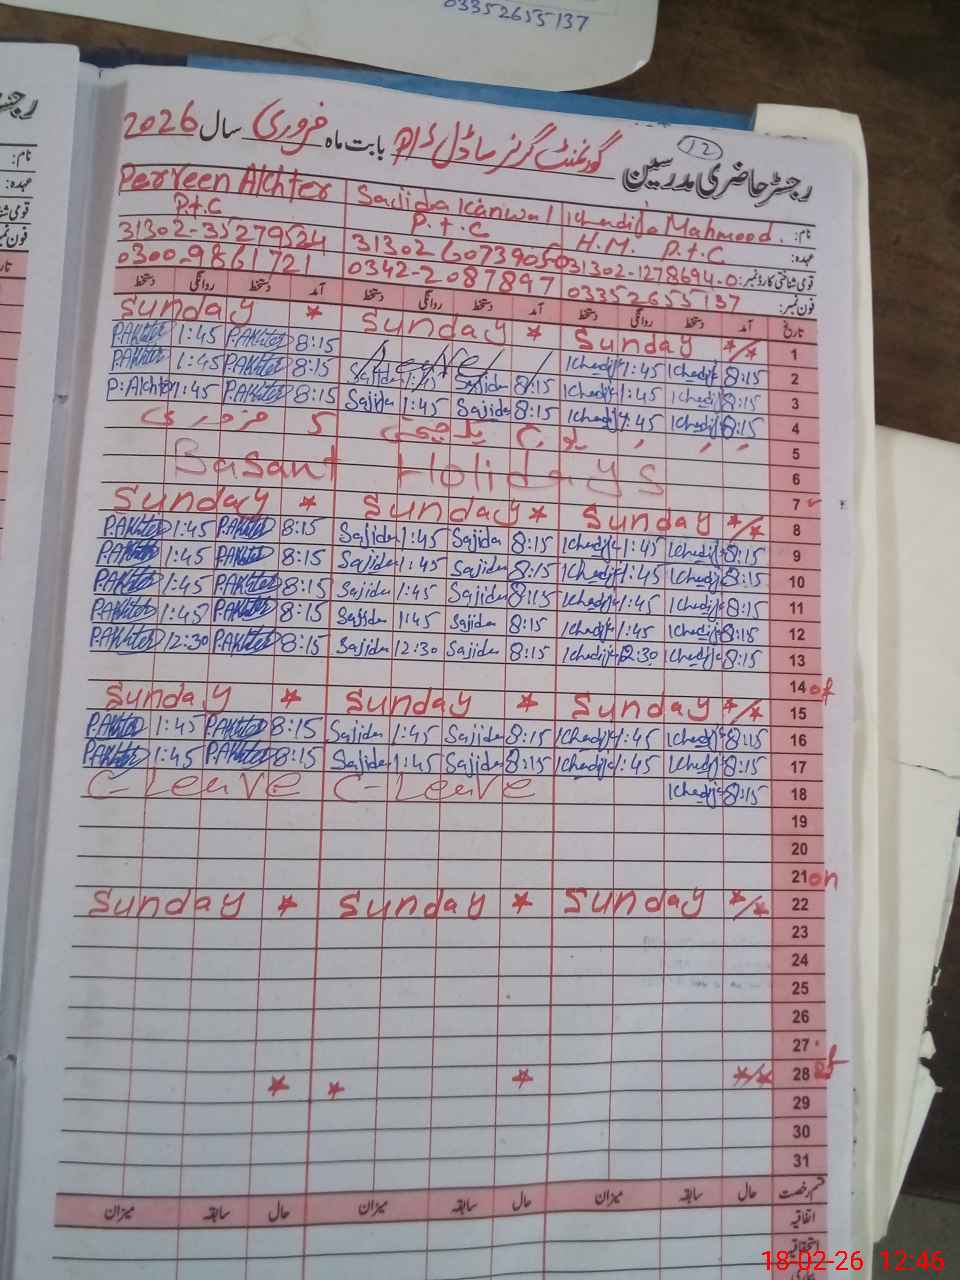 03352655137
12
رجسٹر حاضری مدرسین گورنمنٹ گرلز ماڈل بابت ماہ فروری سال 2026
نام: Khadija Mahmood. Sajida Kanwal Perveen Akhter
عہدہ: H.M. P.t.C P.t.C P.t.C
قومی شناختی کارڈ نمبر: 31302-1278694-0 31302 6073905 0 31302-35279524
فون نمبر: 03352655137 0342-2087897 0300-9861721
تاریخ آمد دستخط روانگی دستخط آمد دستخط روانگی دستخط آمد دستخط روانگی دستخط
1 Sunday Sunday * Sunday *
2 8:15 Khadija 1:45 Khadija Leave 8:15 P.Akhter 1:45 P.Akhter
3 8:15 Khadija 1:45 Khadija 8:15 Sajida 1:45 Sajida 8:15 P.Akhter 1:45 P.Akhter
4 8:15 Khadija 1:45 Khadija 8:15 Sajida 1:45 Sajida 8:15 P.Akhter 1:45 P:Akhter
5 یوم یکجہتی 5 فروری
6 Basant Holidays
7
8 Sunday Sunday * Sunday *
9 8:15 Khadija 1:45 Khadija 8:15 Sajida 1:45 Sajida 8:15 P.Akhter 1:45 P.Akhter
10 8:15 Khadija 1:45 Khadija 8:15 Sajida 1:45 Sajida 8:15 P.Akhter 1:45 P.Akhter
11 8:15 Khadija 1:45 Khadija 8:15 Sajida 1:45 Sajida 8:15 P.Akhter 1:45 P.Akhter
12 8:15 Khadija 1:45 Khadija 8:15 Sajida 1:45 Sajida 8:15 P.Akhter 1:45 P.Akhter
13 8:15 Khadija 12:30 Khadija 8:15 Sajida 12:30 Sajida 8:15 P.Akhter 12:30 P.Akhter
14 of
15 Sunday Sunday * Sunday *
16 8:15 Khadija 1:45 Khadija 8:15 Sajida 1:45 Sajida 8:15 P.Akhter 1:45 P.Akhter
17 8:15 Khadija 1:45 Khadija 8:15 Sajida 1:45 Sajida 8:15 P.Akhter 1:45 P.Akhter
18 8:15 Khadija C-Leave C-Leave
19
20
21 on
22 Sunday Sunday * Sunday *
23
24
25
26
27
28
29
30
31
قسم رخصت حال سابقہ میزان حال سابقہ میزان حال سابقہ میزان
اتفاقیہ
استحقاقیہ
18-02-26 12:46